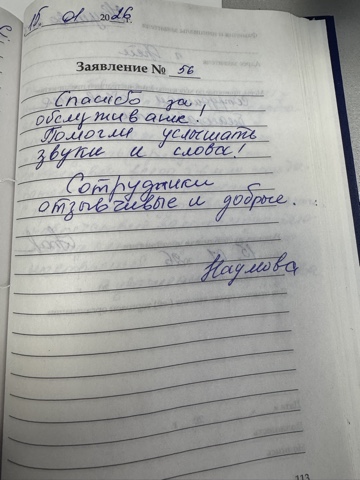 15. 01 2026
Заявление № 56
Спасибо за
обслуживание!
Помогли услышать
звуки и слова!
Сотрудники
отзывчивые и добрые.
Наумова
113